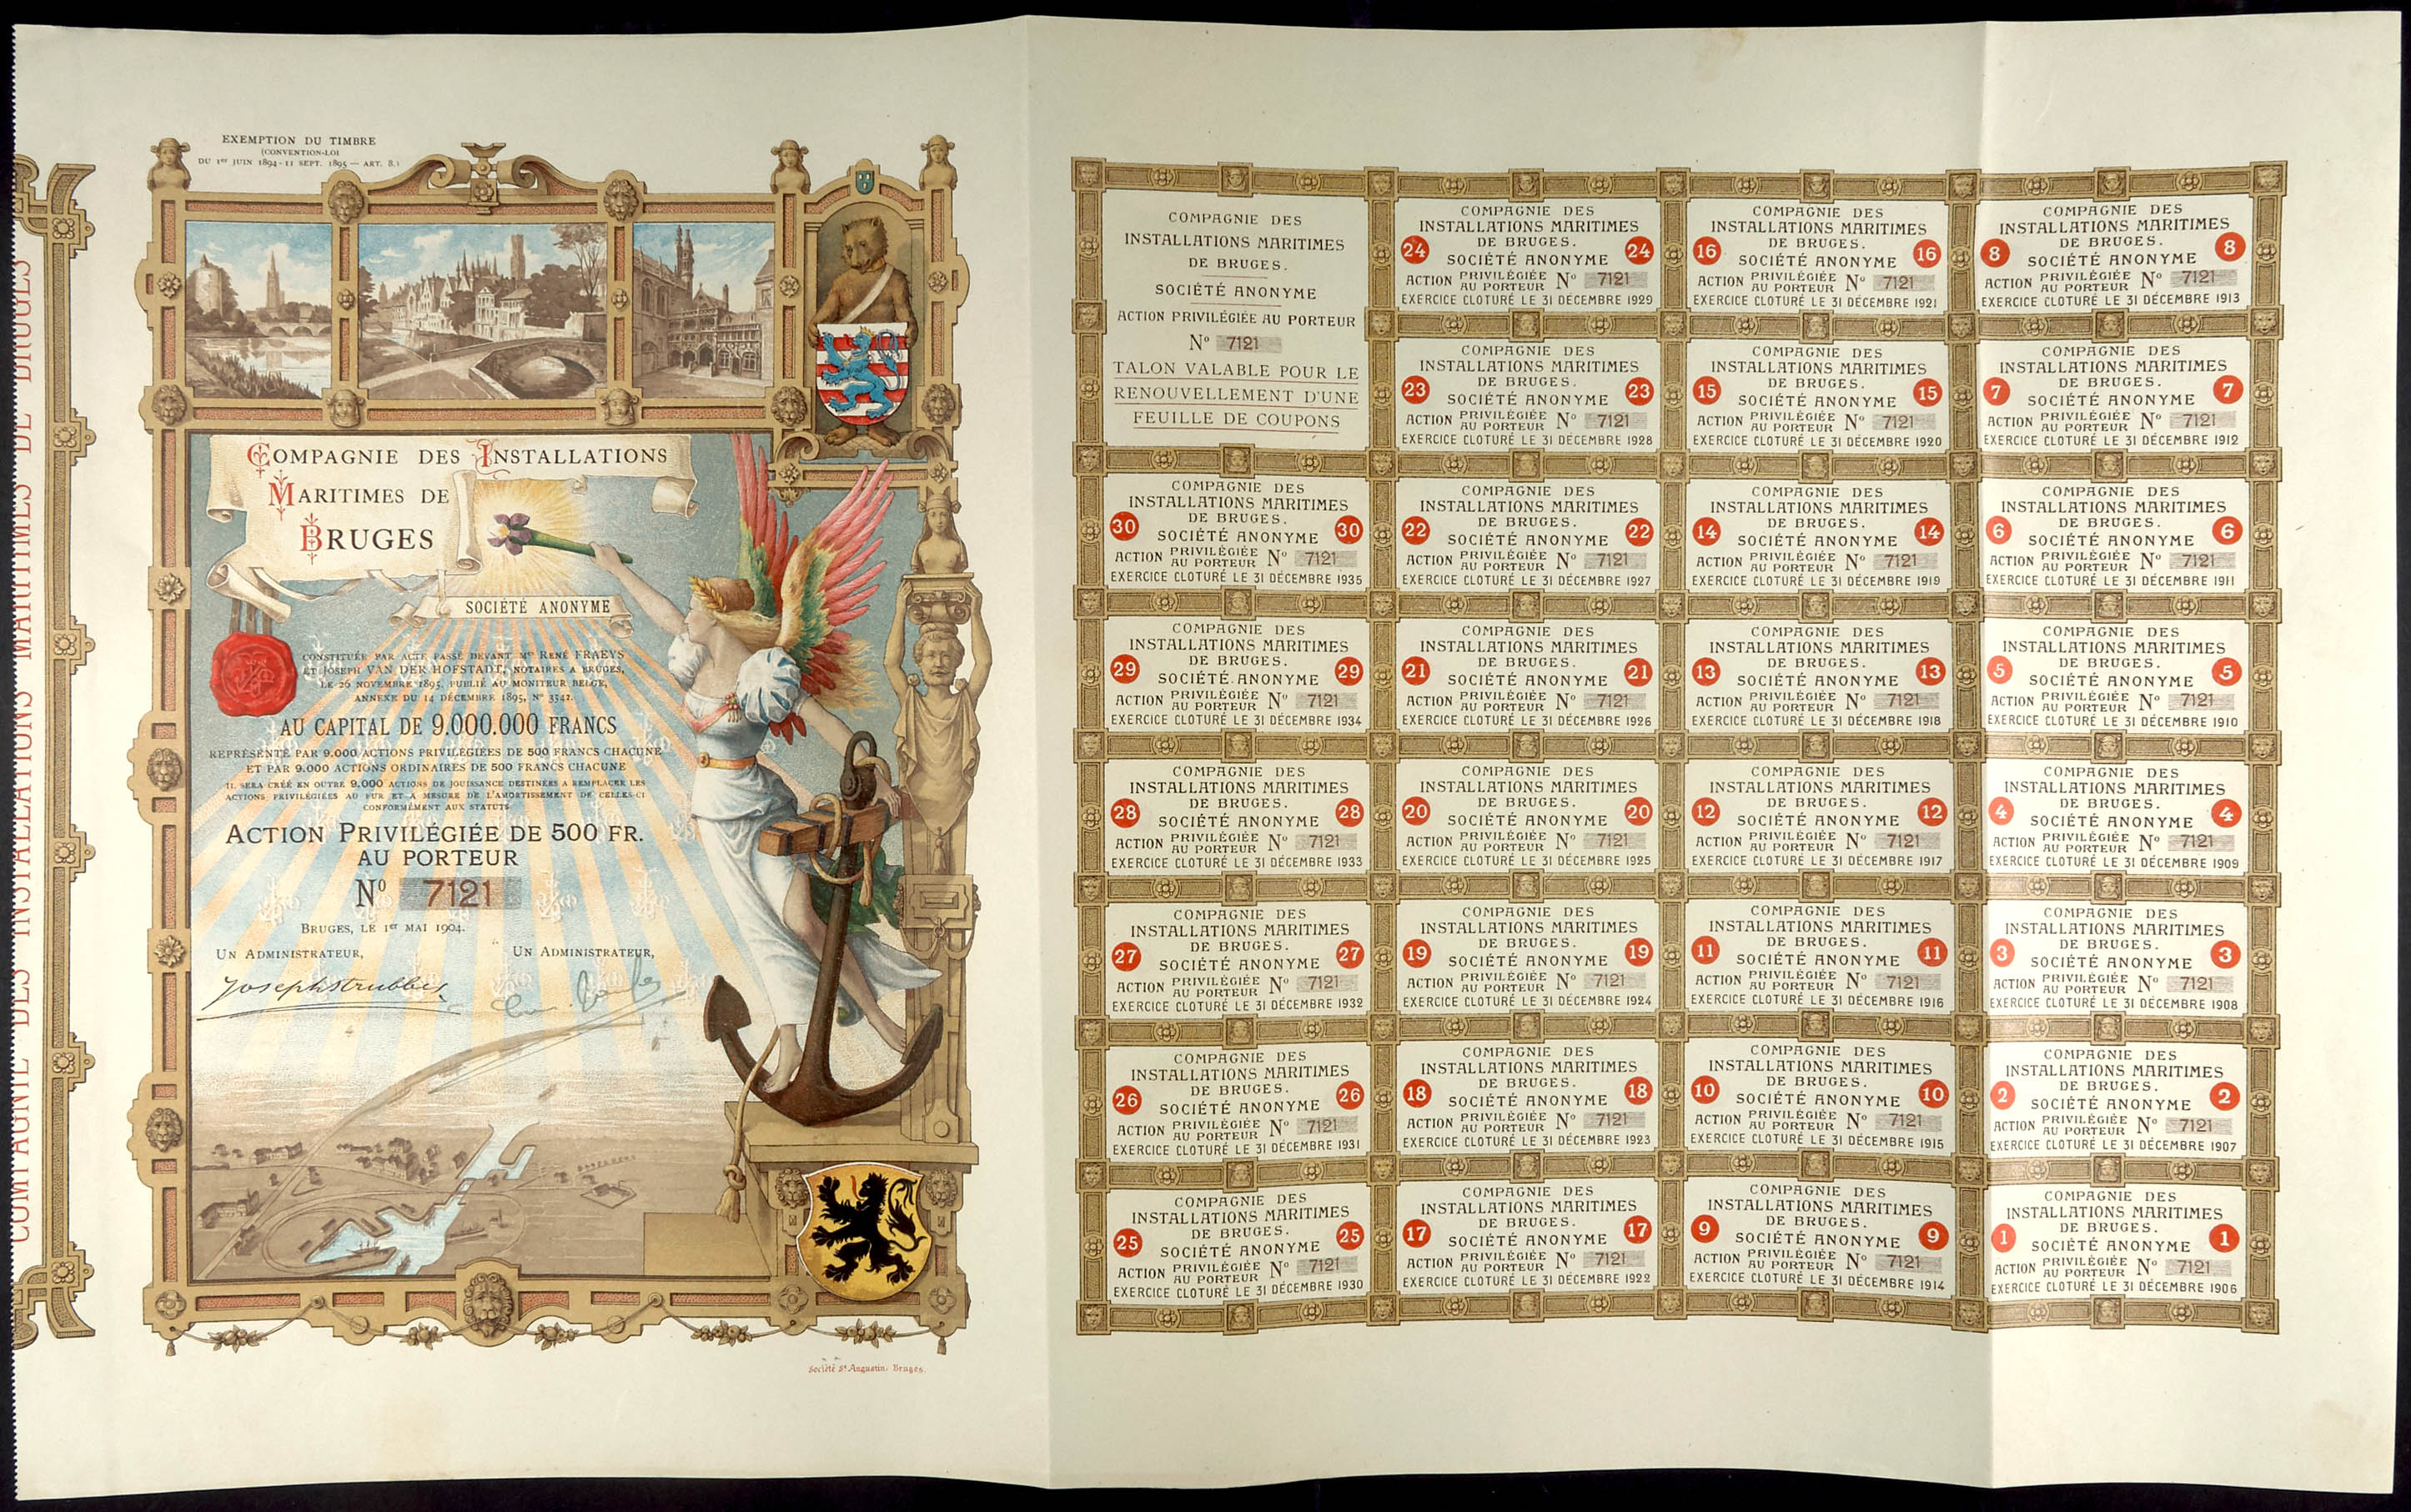 COMPAGNIE DES INSTALLATIONS MARITIMES DE BRUGES
EXEMPTION DU TIMBRE
(CONVENTION-LOI
DU 1er JUIN 1894-11 SEPT. 1895 — ART. 8.)
COMPAGNIE DES INSTALLATIONS
MARITIMES DE
BRUGES
SOCIÉTÉ ANONYME
CONSTITUÉE PAR ACTE PASSÉ DEVANT Mes RENÉ FRAEYS
ET JOSEPH VAN DER HOFSTADT, NOTAIRES A BRUGES,
LE 26 NOVEMBRE 1895, PUBLIÉ AU MONITEUR BELGE,
ANNEXE DU 14 DÉCEMBRE 1895, No 3542.
AU CAPITAL DE 9.000.000 FRANCS
REPRÉSENTÉ PAR 9.000 ACTIONS PRIVILÉGIÉES DE 500 FRANCS CHACUNE
ET PAR 9.000 ACTIONS ORDINAIRES DE 500 FRANCS CHACUNE
IL SERA CRÉÉ EN OUTRE 9.000 ACTIONS DE JOUISSANCE DESTINÉES A REMPLACER LES
ACTIONS PRIVILÉGIÉES AU FUR ET A MESURE DE L'AMORTISSEMENT DE CELLES-CI
CONFORMÉMENT AUX STATUTS
ACTION PRIVILÉGIÉE DE 500 FR.
AU PORTEUR
No 7121
BRUGES, LE 1er MAI 1904.
UN ADMINISTRATEUR, UN ADMINISTRATEUR,
Joseph Strubbe
Société St Augustin, Bruges.
COMPAGNIE DES
INSTALLATIONS MARITIMES
DE BRUGES.
SOCIÉTÉ ANONYME
ACTION PRIVILÉGIÉE AU PORTEUR
No 7121
TALON VALABLE POUR LE
RENOUVELLEMENT D'UNE
FEUILLE DE COUPONS
COMPAGNIE DES
INSTALLATIONS MARITIMES
DE BRUGES.
30 SOCIÉTÉ ANONYME 30
ACTION PRIVILÉGIÉE AU PORTEUR No 7121
EXERCICE CLOTURÉ LE 31 DÉCEMBRE 1935
COMPAGNIE DES
INSTALLATIONS MARITIMES
DE BRUGES.
29 SOCIÉTÉ ANONYME 29
ACTION PRIVILÉGIÉE AU PORTEUR No 7121
EXERCICE CLOTURÉ LE 31 DÉCEMBRE 1934
COMPAGNIE DES
INSTALLATIONS MARITIMES
DE BRUGES.
28 SOCIÉTÉ ANONYME 28
ACTION PRIVILÉGIÉE AU PORTEUR No 7121
EXERCICE CLOTURÉ LE 31 DÉCEMBRE 1933
COMPAGNIE DES
INSTALLATIONS MARITIMES
DE BRUGES.
27 SOCIÉTÉ ANONYME 27
ACTION PRIVILÉGIÉE AU PORTEUR No 7121
EXERCICE CLOTURÉ LE 31 DÉCEMBRE 1932
COMPAGNIE DES
INSTALLATIONS MARITIMES
DE BRUGES.
26 SOCIÉTÉ ANONYME 26
ACTION PRIVILÉGIÉE AU PORTEUR No 7121
EXERCICE CLOTURÉ LE 31 DÉCEMBRE 1931
COMPAGNIE DES
INSTALLATIONS MARITIMES
DE BRUGES.
25 SOCIÉTÉ ANONYME 25
ACTION PRIVILÉGIÉE AU PORTEUR No 7121
EXERCICE CLOTURÉ LE 31 DÉCEMBRE 1930
COMPAGNIE DES
INSTALLATIONS MARITIMES
DE BRUGES.
24 SOCIÉTÉ ANONYME 24
ACTION PRIVILÉGIÉE AU PORTEUR No 7121
EXERCICE CLOTURÉ LE 31 DÉCEMBRE 1929
COMPAGNIE DES
INSTALLATIONS MARITIMES
DE BRUGES.
23 SOCIÉTÉ ANONYME 23
ACTION PRIVILÉGIÉE AU PORTEUR No 7121
EXERCICE CLOTURÉ LE 31 DÉCEMBRE 1928
COMPAGNIE DES
INSTALLATIONS MARITIMES
DE BRUGES.
22 SOCIÉTÉ ANONYME 22
ACTION PRIVILÉGIÉE AU PORTEUR No 7121
EXERCICE CLOTURÉ LE 31 DÉCEMBRE 1927
COMPAGNIE DES
INSTALLATIONS MARITIMES
DE BRUGES.
21 SOCIÉTÉ ANONYME 21
ACTION PRIVILÉGIÉE AU PORTEUR No 7121
EXERCICE CLOTURÉ LE 31 DÉCEMBRE 1926
COMPAGNIE DES
INSTALLATIONS MARITIMES
DE BRUGES.
20 SOCIÉTÉ ANONYME 20
ACTION PRIVILÉGIÉE AU PORTEUR No 7121
EXERCICE CLOTURÉ LE 31 DÉCEMBRE 1925
COMPAGNIE DES
INSTALLATIONS MARITIMES
DE BRUGES.
19 SOCIÉTÉ ANONYME 19
ACTION PRIVILÉGIÉE AU PORTEUR No 7121
EXERCICE CLOTURÉ LE 31 DÉCEMBRE 1924
COMPAGNIE DES
INSTALLATIONS MARITIMES
DE BRUGES.
18 SOCIÉTÉ ANONYME 18
ACTION PRIVILÉGIÉE AU PORTEUR No 7121
EXERCICE CLOTURÉ LE 31 DÉCEMBRE 1923
COMPAGNIE DES
INSTALLATIONS MARITIMES
DE BRUGES.
17 SOCIÉTÉ ANONYME 17
ACTION PRIVILÉGIÉE AU PORTEUR No 7121
EXERCICE CLOTURÉ LE 31 DÉCEMBRE 1922
COMPAGNIE DES
INSTALLATIONS MARITIMES
DE BRUGES.
16 SOCIÉTÉ ANONYME 16
ACTION PRIVILÉGIÉE AU PORTEUR No 7121
EXERCICE CLOTURÉ LE 31 DÉCEMBRE 1921
COMPAGNIE DES
INSTALLATIONS MARITIMES
DE BRUGES.
15 SOCIÉTÉ ANONYME 15
ACTION PRIVILÉGIÉE AU PORTEUR No 7121
EXERCICE CLOTURÉ LE 31 DÉCEMBRE 1920
COMPAGNIE DES
INSTALLATIONS MARITIMES
DE BRUGES.
14 SOCIÉTÉ ANONYME 14
ACTION PRIVILÉGIÉE AU PORTEUR No 7121
EXERCICE CLOTURÉ LE 31 DÉCEMBRE 1919
COMPAGNIE DES
INSTALLATIONS MARITIMES
DE BRUGES.
13 SOCIÉTÉ ANONYME 13
ACTION PRIVILÉGIÉE AU PORTEUR No 7121
EXERCICE CLOTURÉ LE 31 DÉCEMBRE 1918
COMPAGNIE DES
INSTALLATIONS MARITIMES
DE BRUGES.
12 SOCIÉTÉ ANONYME 12
ACTION PRIVILÉGIÉE AU PORTEUR No 7121
EXERCICE CLOTURÉ LE 31 DÉCEMBRE 1917
COMPAGNIE DES
INSTALLATIONS MARITIMES
DE BRUGES.
11 SOCIÉTÉ ANONYME 11
ACTION PRIVILÉGIÉE AU PORTEUR No 7121
EXERCICE CLOTURÉ LE 31 DÉCEMBRE 1916
COMPAGNIE DES
INSTALLATIONS MARITIMES
DE BRUGES.
10 SOCIÉTÉ ANONYME 10
ACTION PRIVILÉGIÉE AU PORTEUR No 7121
EXERCICE CLOTURÉ LE 31 DÉCEMBRE 1915
COMPAGNIE DES
INSTALLATIONS MARITIMES
DE BRUGES.
9 SOCIÉTÉ ANONYME 9
ACTION PRIVILÉGIÉE AU PORTEUR No 7121
EXERCICE CLOTURÉ LE 31 DÉCEMBRE 1914
COMPAGNIE DES
INSTALLATIONS MARITIMES
DE BRUGES.
8 SOCIÉTÉ ANONYME 8
ACTION PRIVILÉGIÉE AU PORTEUR No 7121
EXERCICE CLOTURÉ LE 31 DÉCEMBRE 1913
COMPAGNIE DES
INSTALLATIONS MARITIMES
DE BRUGES.
7 SOCIÉTÉ ANONYME 7
ACTION PRIVILÉGIÉE AU PORTEUR No 7121
EXERCICE CLOTURÉ LE 31 DÉCEMBRE 1912
COMPAGNIE DES
INSTALLATIONS MARITIMES
DE BRUGES.
6 SOCIÉTÉ ANONYME 6
ACTION PRIVILÉGIÉE AU PORTEUR No 7121
EXERCICE CLOTURÉ LE 31 DÉCEMBRE 1911
COMPAGNIE DES
INSTALLATIONS MARITIMES
DE BRUGES.
5 SOCIÉTÉ ANONYME 5
ACTION PRIVILÉGIÉE AU PORTEUR No 7121
EXERCICE CLOTURÉ LE 31 DÉCEMBRE 1910
COMPAGNIE DES
INSTALLATIONS MARITIMES
DE BRUGES.
4 SOCIÉTÉ ANONYME 4
ACTION PRIVILÉGIÉE AU PORTEUR No 7121
EXERCICE CLOTURÉ LE 31 DÉCEMBRE 1909
COMPAGNIE DES
INSTALLATIONS MARITIMES
DE BRUGES.
3 SOCIÉTÉ ANONYME 3
ACTION PRIVILÉGIÉE AU PORTEUR No 7121
EXERCICE CLOTURÉ LE 31 DÉCEMBRE 1908
COMPAGNIE DES
INSTALLATIONS MARITIMES
DE BRUGES.
2 SOCIÉTÉ ANONYME 2
ACTION PRIVILÉGIÉE AU PORTEUR No 7121
EXERCICE CLOTURÉ LE 31 DÉCEMBRE 1907
COMPAGNIE DES
INSTALLATIONS MARITIMES
DE BRUGES.
1 SOCIÉTÉ ANONYME 1
ACTION PRIVILÉGIÉE AU PORTEUR No 7121
EXERCICE CLOTURÉ LE 31 DÉCEMBRE 1906